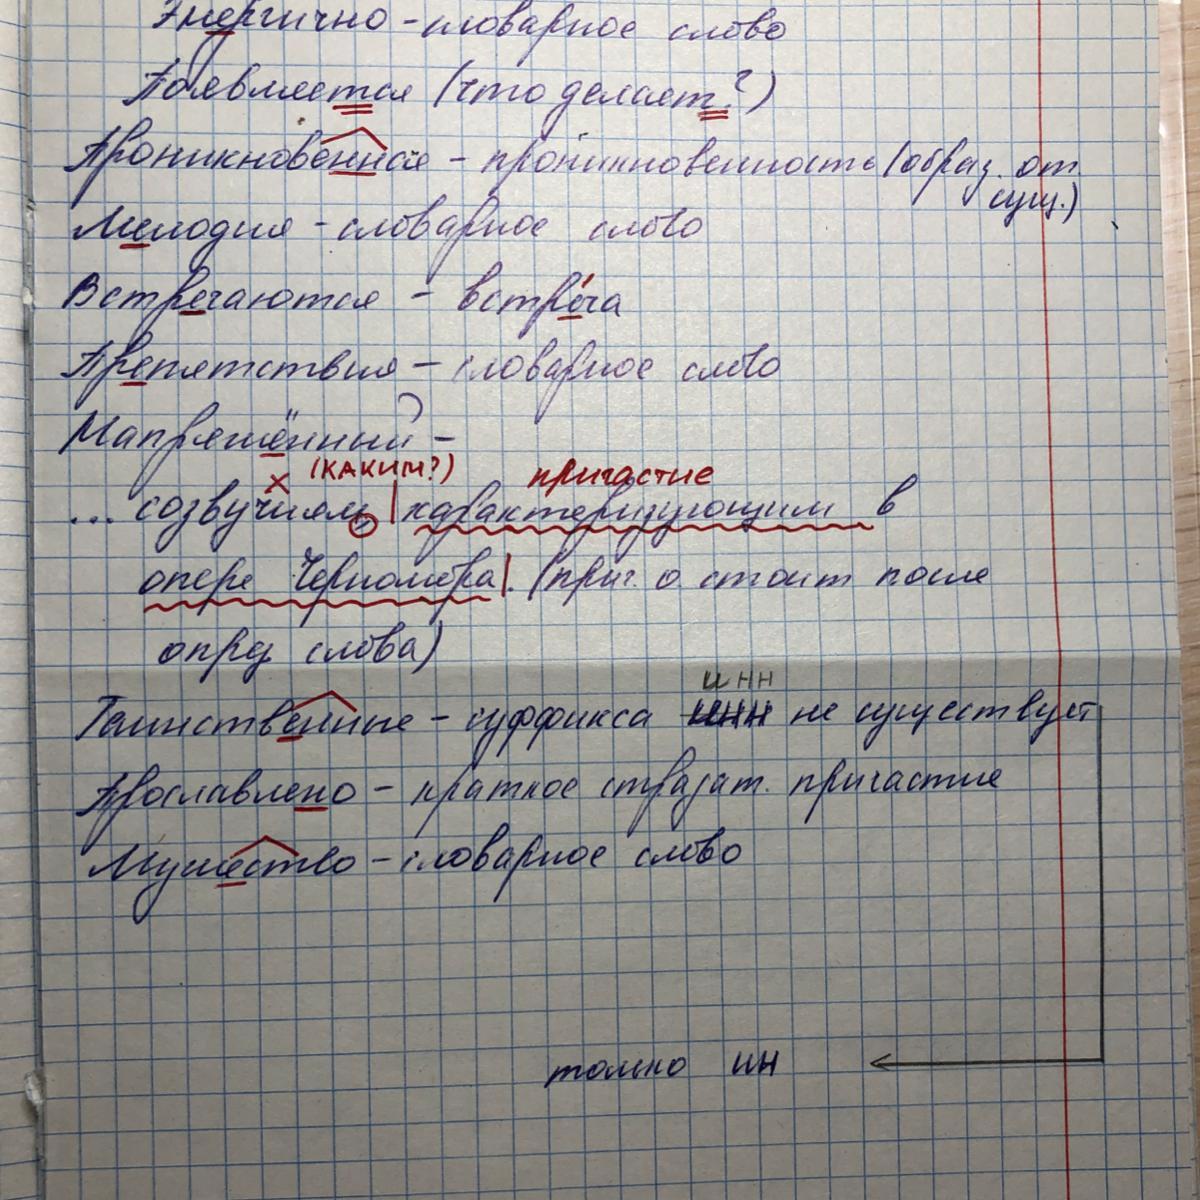 Энергично - словарное слово
Появляется (что делает?)
Проникновенная - проникновенность (образ. от
сущ.)
Мелодия - словарное слово
Встречаются - встреча
Препятствия - словарное слово
Напряжённый -
(КАКИМ?) причастие
... созвучиям характеризующим в
опере Черномора. (прич. о стоит после
опред слова)
инн
Таинственные - суффикса не существует
Прославлено - краткое страдат. причастие
Мужество - словарное слово
только ин